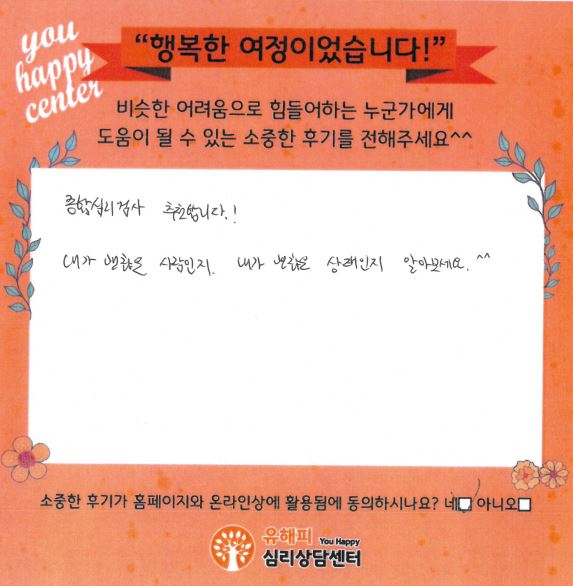 you
happy
center
“행복한 여정이었습니다!”
비슷한 어려움으로 힘들어하는 누군가에게
도움이 될 수 있는 소중한 후기를 전해주세요^^
종합심리검사 추천합니다.!
내가 괜찮은 사람인지. 내가 괜찮은 상태인지 알아보세요.^^
소중한 후기가 홈페이지와 온라인상에 활용됨에 동의하시나요? 네 아니오
유해피 You Happy
심리상담센터